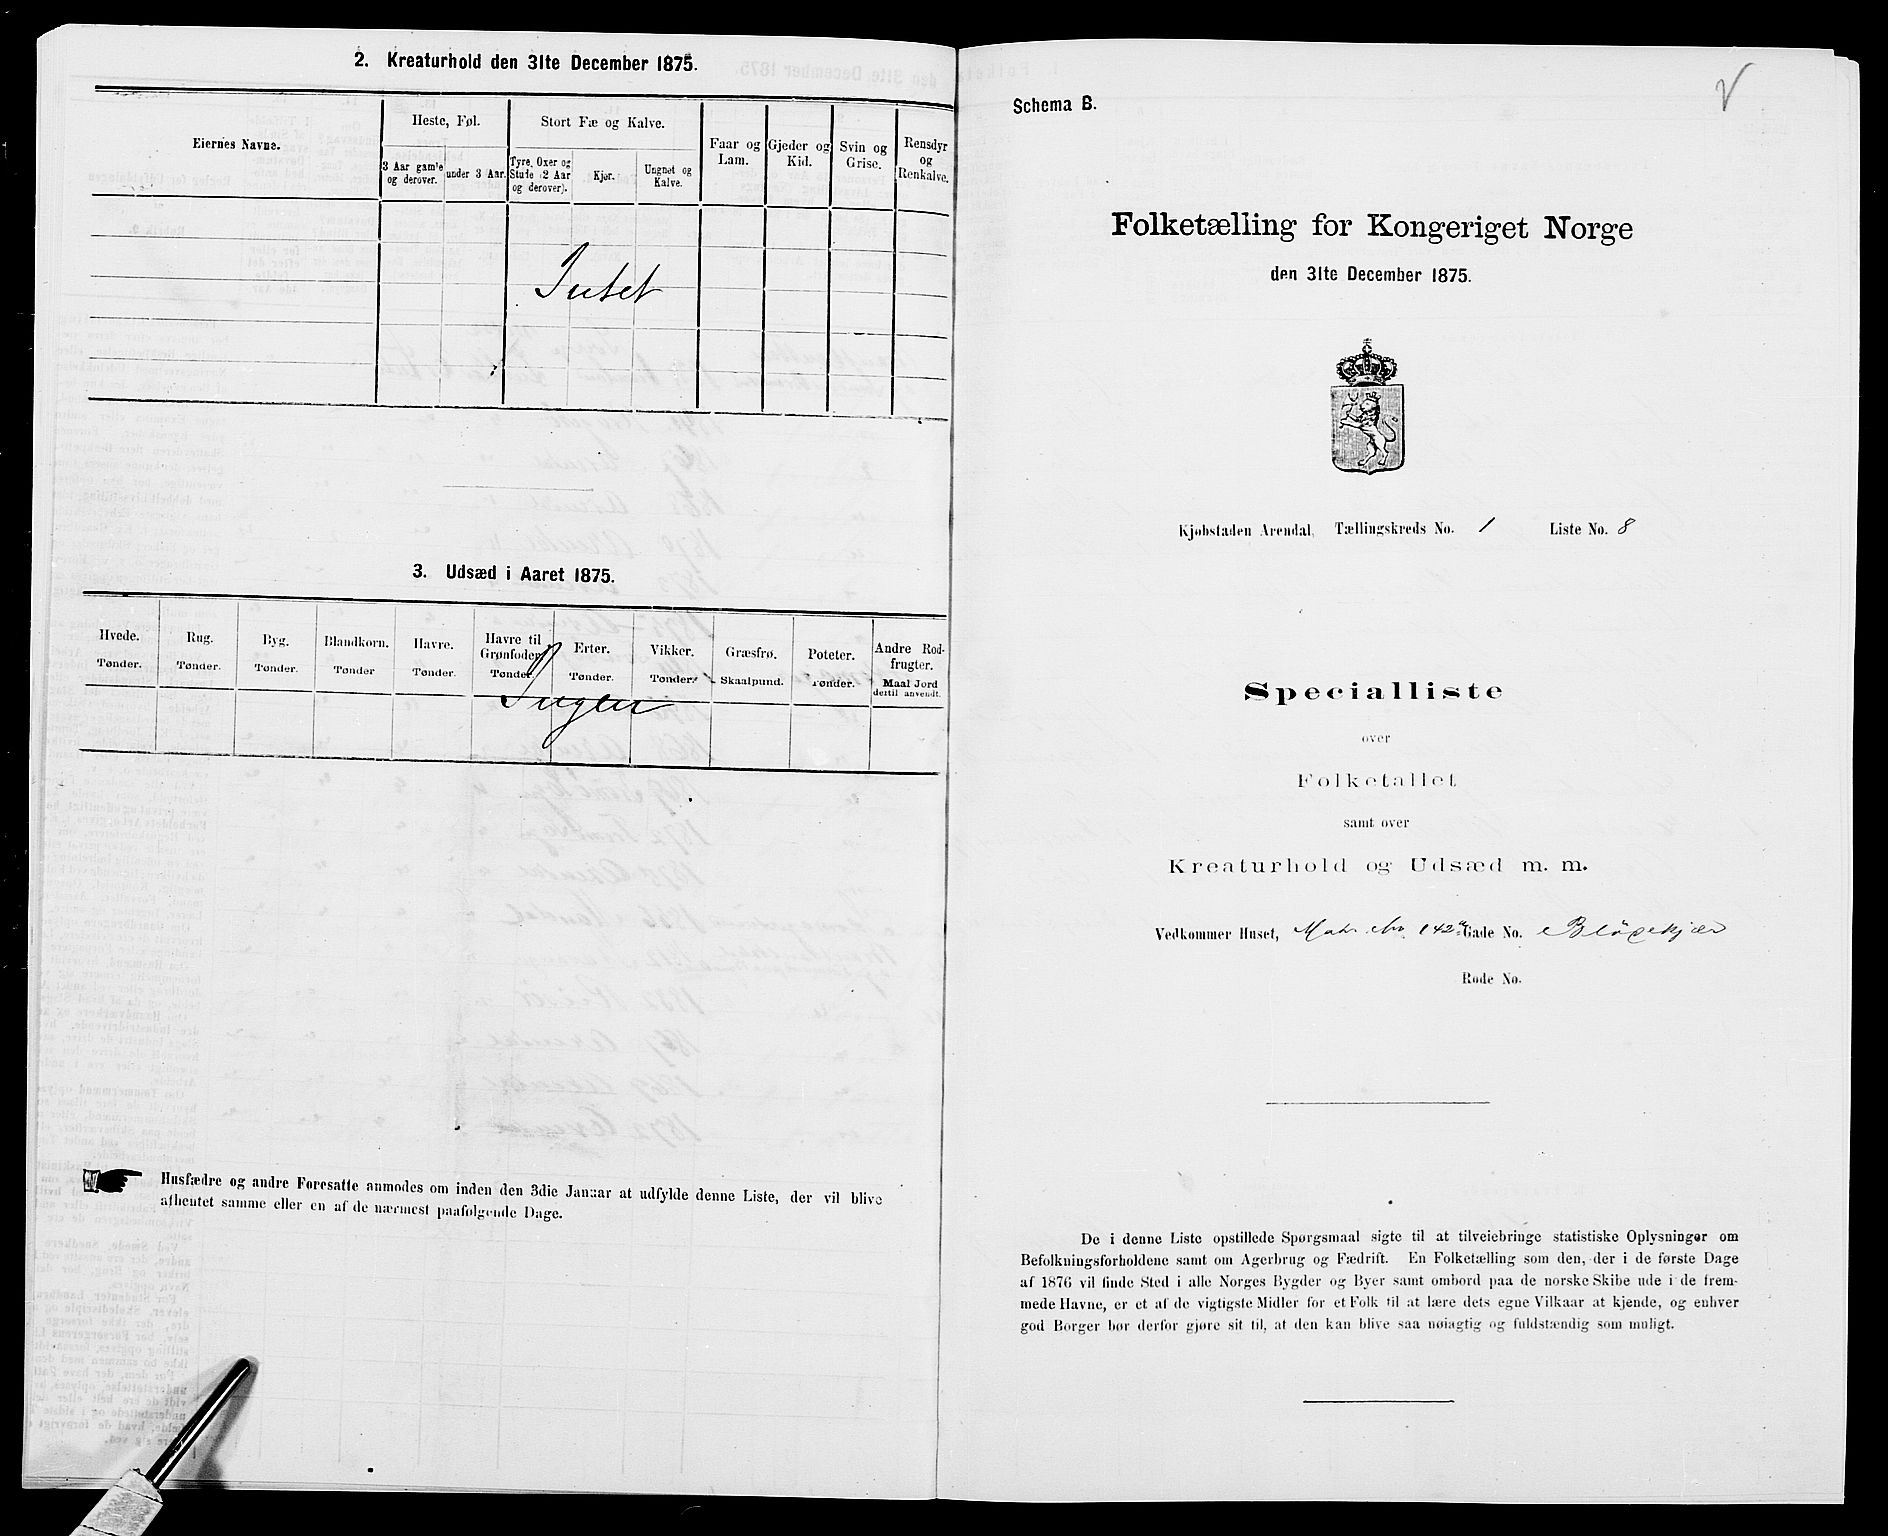 2. Kreaturhold den 31te December 1875.
Eiernes Navne.
Heste, Føl.
Stort Fæ og Kalve.
Faar og
Lam.
Gjeder og
Kid.
Svin og
Grise.
Rensdyr
og
Renkalve.
3 Aar gamle
og derover.
under 3 Aar.
Tyre, Oxer og
Stude (2 Aar
og derover).
Kjør.
Ungnøt og
Kalve.
Intet
3. Udsæd i Aaret 1875.
Hvede.
Tønder.
Rug.
Tønder.
Byg.
Tønder.
Blandkorn.
Tønder
Havre.
Tønder.
Havre til
Grønfoder
Tønder.
Erter.
Tønder.
Vikker.
Tønder.
Græsfrø.
Skaalpund.
Poteter.
Tønder.
Andre Rod-
frugter.
Maal Jord
dertil anvendt.
Ingen
Husfædre og andre Foresatte anmodes om inden den 3die Januar at udfylde denne Liste, der vil blive
afhentet samme eller en af de nærmest paafølgende Dage.
Schema B.
Folketælling for Kongeriget Norge
den 31te December 1875.
Kjøbstaden Arendal, Tællingskreds No. 1 Liste No. 8
Specialliste
over
Folketallet
samt over
Kreaturhold og Udsæd m. m.
Vedkommer Huset, Matr. No. 142 Gade No. Blødekjær
Rode No.
De i denne Liste opstillede Spørgsmaal sigte til at tilveiebringe statistiske Oplysninger om
Befolkningsforholdene samt om Agerbrug og Fædrift. En Folketælling som den, der i de første Dage
af 1876 vil finde Sted i alle Norges Bygder og Byer samt ombord paa de norske Skibe ude i de frem-
mede Havne, er et af de vigtigste Midler for et Folk til at lære dets egne Vilkaar at kjende, og enhver
god Borger bør derfor gjøre sit til, at den kan blive saa nøiagtig og fuldstændig som muligt.